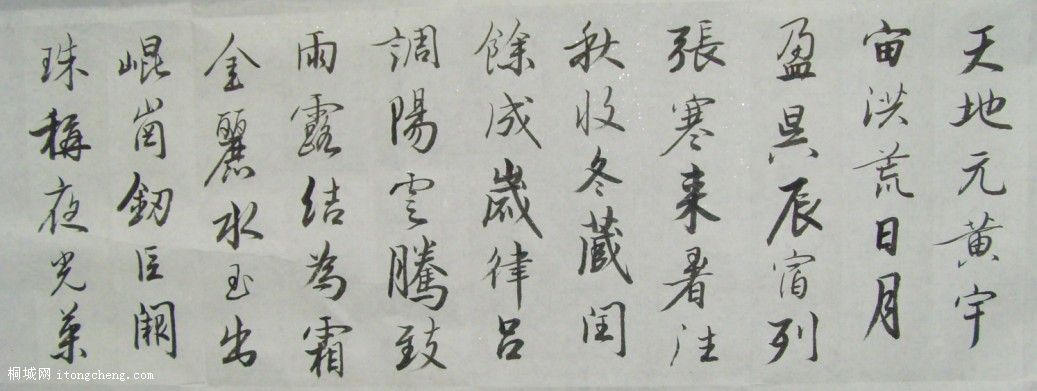 天地元黄宇
宙洪荒日月
盈昃辰宿列
張寒来暑往
秋收冬藏闰
餘成歲律吕
調陽雲騰致
雨露结為霜
金麗水玉出
崐崗釼巨闕
珠稱夜光菓
桐城网 itongcheng.com